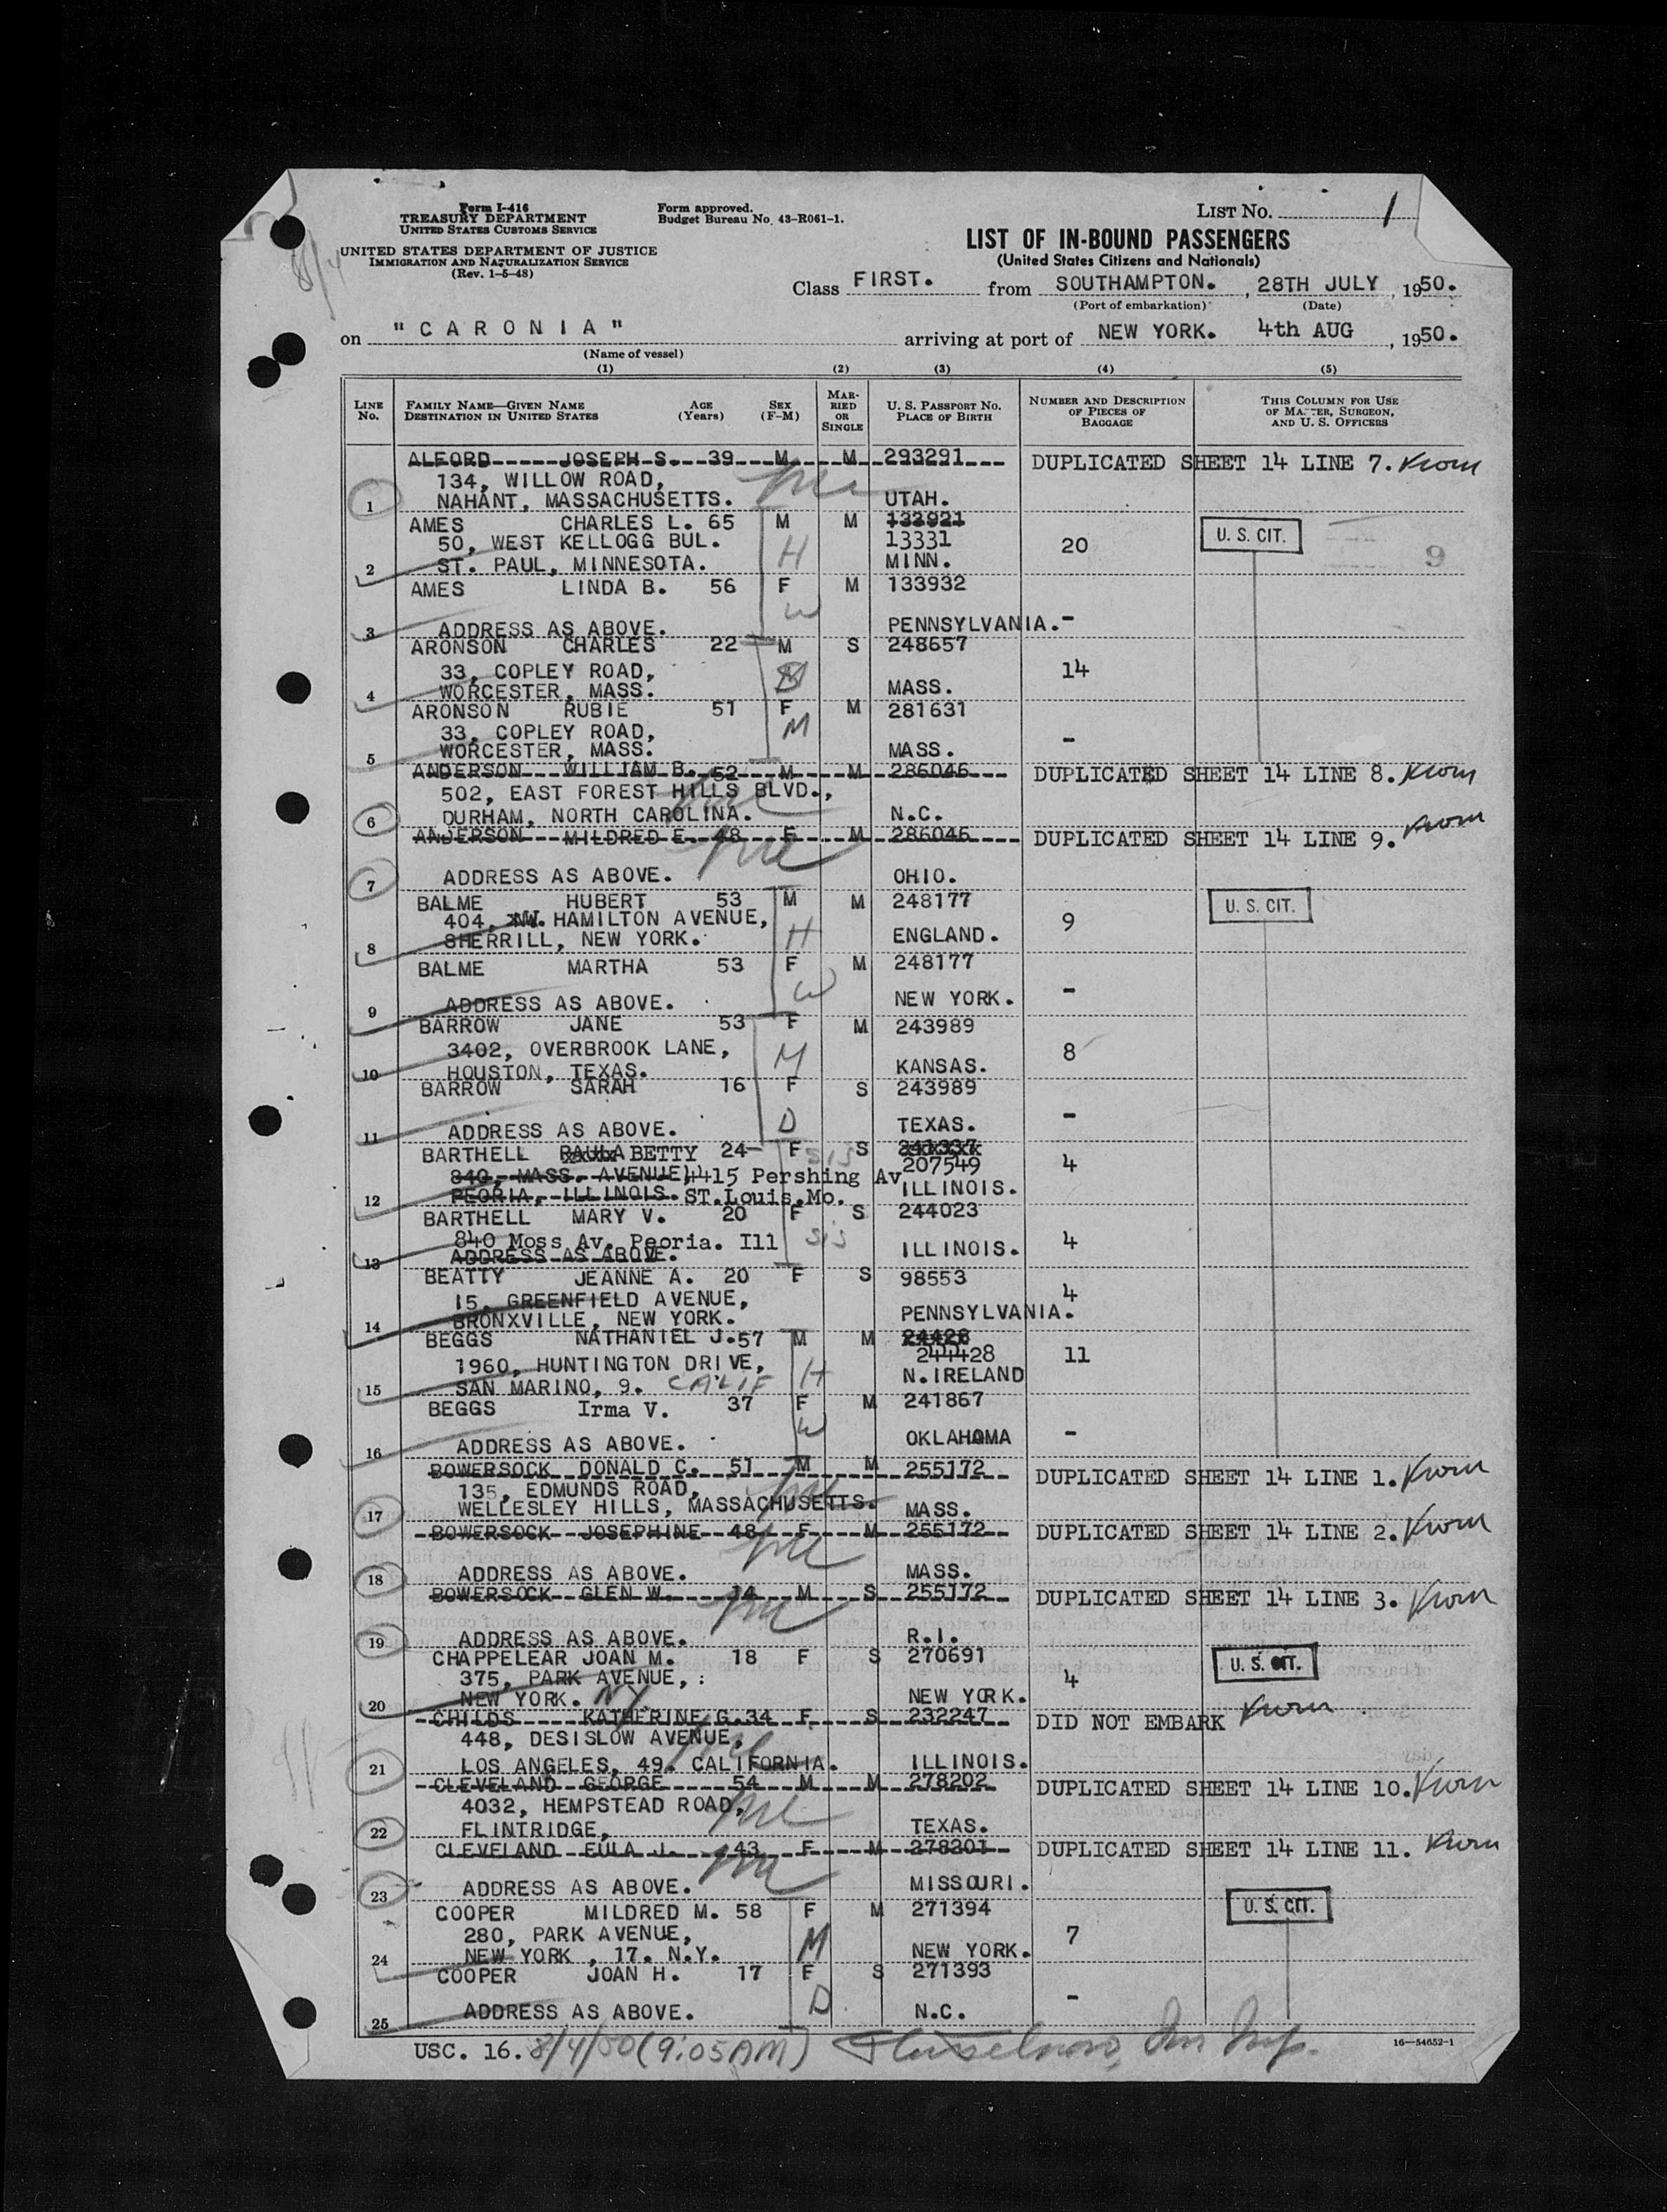 Form I-416
TREASURY DEPARTMENT
UNITED STATES CUSTOMS SERVICE
UNITED STATES DEPARTMENT OF JUSTICE
IMMIGRATION AND NATURALIZATION SERVICE
(Rev. 1-5-48)
Form approved.
Budget Bureau No. 43-R061-1.
LIST NO. 1
LIST OF IN-BOUND PASSENGERS
(United States Citizens and Nationals)
Class FIRST. from SOUTHAMPTON. , 28TH JULY , 1950.
(Port of embarkation) (Date)
on "CARONIA" arriving at port of NEW YORK. 4th AUG , 1950.
(Name of vessel)
(1) (2) (3) (4) (5)
LINE No. FAMILY NAME—GIVEN NAME DESTINATION IN UNITED STATES AGE (Years) SEX (F-M) MARRIED OR SINGLE U. S. PASSPORT NO. PLACE OF BIRTH NUMBER AND DESCRIPTION OF PIECES OF BAGGAGE THIS COLUMN FOR USE OF MASTER, SURGEON, AND U. S. OFFICERS
ALFORD JOSEPH S. 39 M M 293291 DUPLICATED SHEET 14 LINE 7.
134, WILLOW ROAD,
1 NAHANT, MASSACHUSETTS. UTAH.
AMES CHARLES L. 65 M M 132921
50, WEST KELLOGG BUL. H 13331 20 U. S. CIT. 9
2 ST. PAUL, MINNESOTA. MINN.
AMES LINDA B. 56 F M 133932
W
3 ADDRESS AS ABOVE. PENNSYLVANIA. -
ARONSON CHARLES 22 M S 248657
33, COPLEY ROAD, 14
4 WORCESTER, MASS. MASS.
ARONSON RUBIE 51 F M 281631
33, COPLEY ROAD, M -
5 WORCESTER, MASS. MASS.
ANDERSON WILLIAM B. 52 M M 286046 DUPLICATED SHEET 14 LINE 8.
502, EAST FOREST HILLS BLVD.,
6 DURHAM, NORTH CAROLINA. N.C.
ANDERSON MILDRED E. 48 F M 286046 DUPLICATED SHEET 14 LINE 9.
7 ADDRESS AS ABOVE. OHIO.
BALME HUBERT 53 M M 248177 U. S. CIT.
404, HAMILTON AVENUE, 9
8 SHERRILL, NEW YORK. H ENGLAND.
BALME MARTHA 53 F M 248177
W
9 ADDRESS AS ABOVE. NEW YORK. -
BARROW JANE 53 F M 243989
3402, OVERBROOK LANE, M 8
10 HOUSTON, TEXAS. KANSAS.
BARROW SARAH 16 F S 243989
D -
11 ADDRESS AS ABOVE. TEXAS.
BARTHELL PAULA BETTY 24 F sis S 241337
840, MASS. AVENUE, 4415 Pershing Av 207549 4
12 PEORIA, ILLINOIS. ST.Louis.Mo. ILLINOIS.
BARTHELL MARY V. 20 F S 244023
840 Moss Av. Peoria. Ill sis 4
13 ADDRESS AS ABOVE. ILLINOIS.
BEATTY JEANNE A. 20 F S 98553
15, GREENFIELD AVENUE, 4
14 BRONXVILLE, NEW YORK. PENNSYLVANIA.
BEGGS NATHANIEL J. 57 M M 24428
1960, HUNTINGTON DRIVE, H 244428 11
15 SAN MARINO, 9. CALIF N.IRELAND
BEGGS Irma V. 37 F M 241867
W
16 ADDRESS AS ABOVE. OKLAHOMA -
BOWERSOCK DONALD C. 51 M M 255172 DUPLICATED SHEET 14 LINE 1.
135, EDMUNDS ROAD,
17 WELLESLEY HILLS, MASSACHUSETTS. MASS.
BOWERSOCK JOSEPHINE 48 F M 255172 DUPLICATED SHEET 14 LINE 2.
18 ADDRESS AS ABOVE. MASS.
BOWERSOCK GLEN W. 14 M S 255172 DUPLICATED SHEET 14 LINE 3.
19 ADDRESS AS ABOVE. R.I.
CHAPPELEAR JOAN M. 18 F S 270691 U. S. CIT.
375, PARK AVENUE, : 4
20 NEW YORK. NY NEW YORK.
CHILDS KATHERINE G. 34 F S 232247 DID NOT EMBARK
448, DESISLOW AVENUE,
21 LOS ANGELES, 49. CALIFORNIA. ILLINOIS.
CLEVELAND GEORGE 54 M M 278202 DUPLICATED SHEET 14 LINE 10.
4032, HEMPSTEAD ROAD,
22 FLINTRIDGE, TEXAS.
CLEVELAND EULA J. 43 F M 278201 DUPLICATED SHEET 14 LINE 11.
23 ADDRESS AS ABOVE. MISSOURI.
COOPER MILDRED M. 58 F M 271394 U. S. CIT.
280, PARK AVENUE, M 7
24 NEW YORK , 17. N.Y. NEW YORK.
COOPER JOAN H. 17 F S 271393
D -
25 ADDRESS AS ABOVE. N.C.
USC. 16. 8/4/50 (9:05AM) 16—54652-1